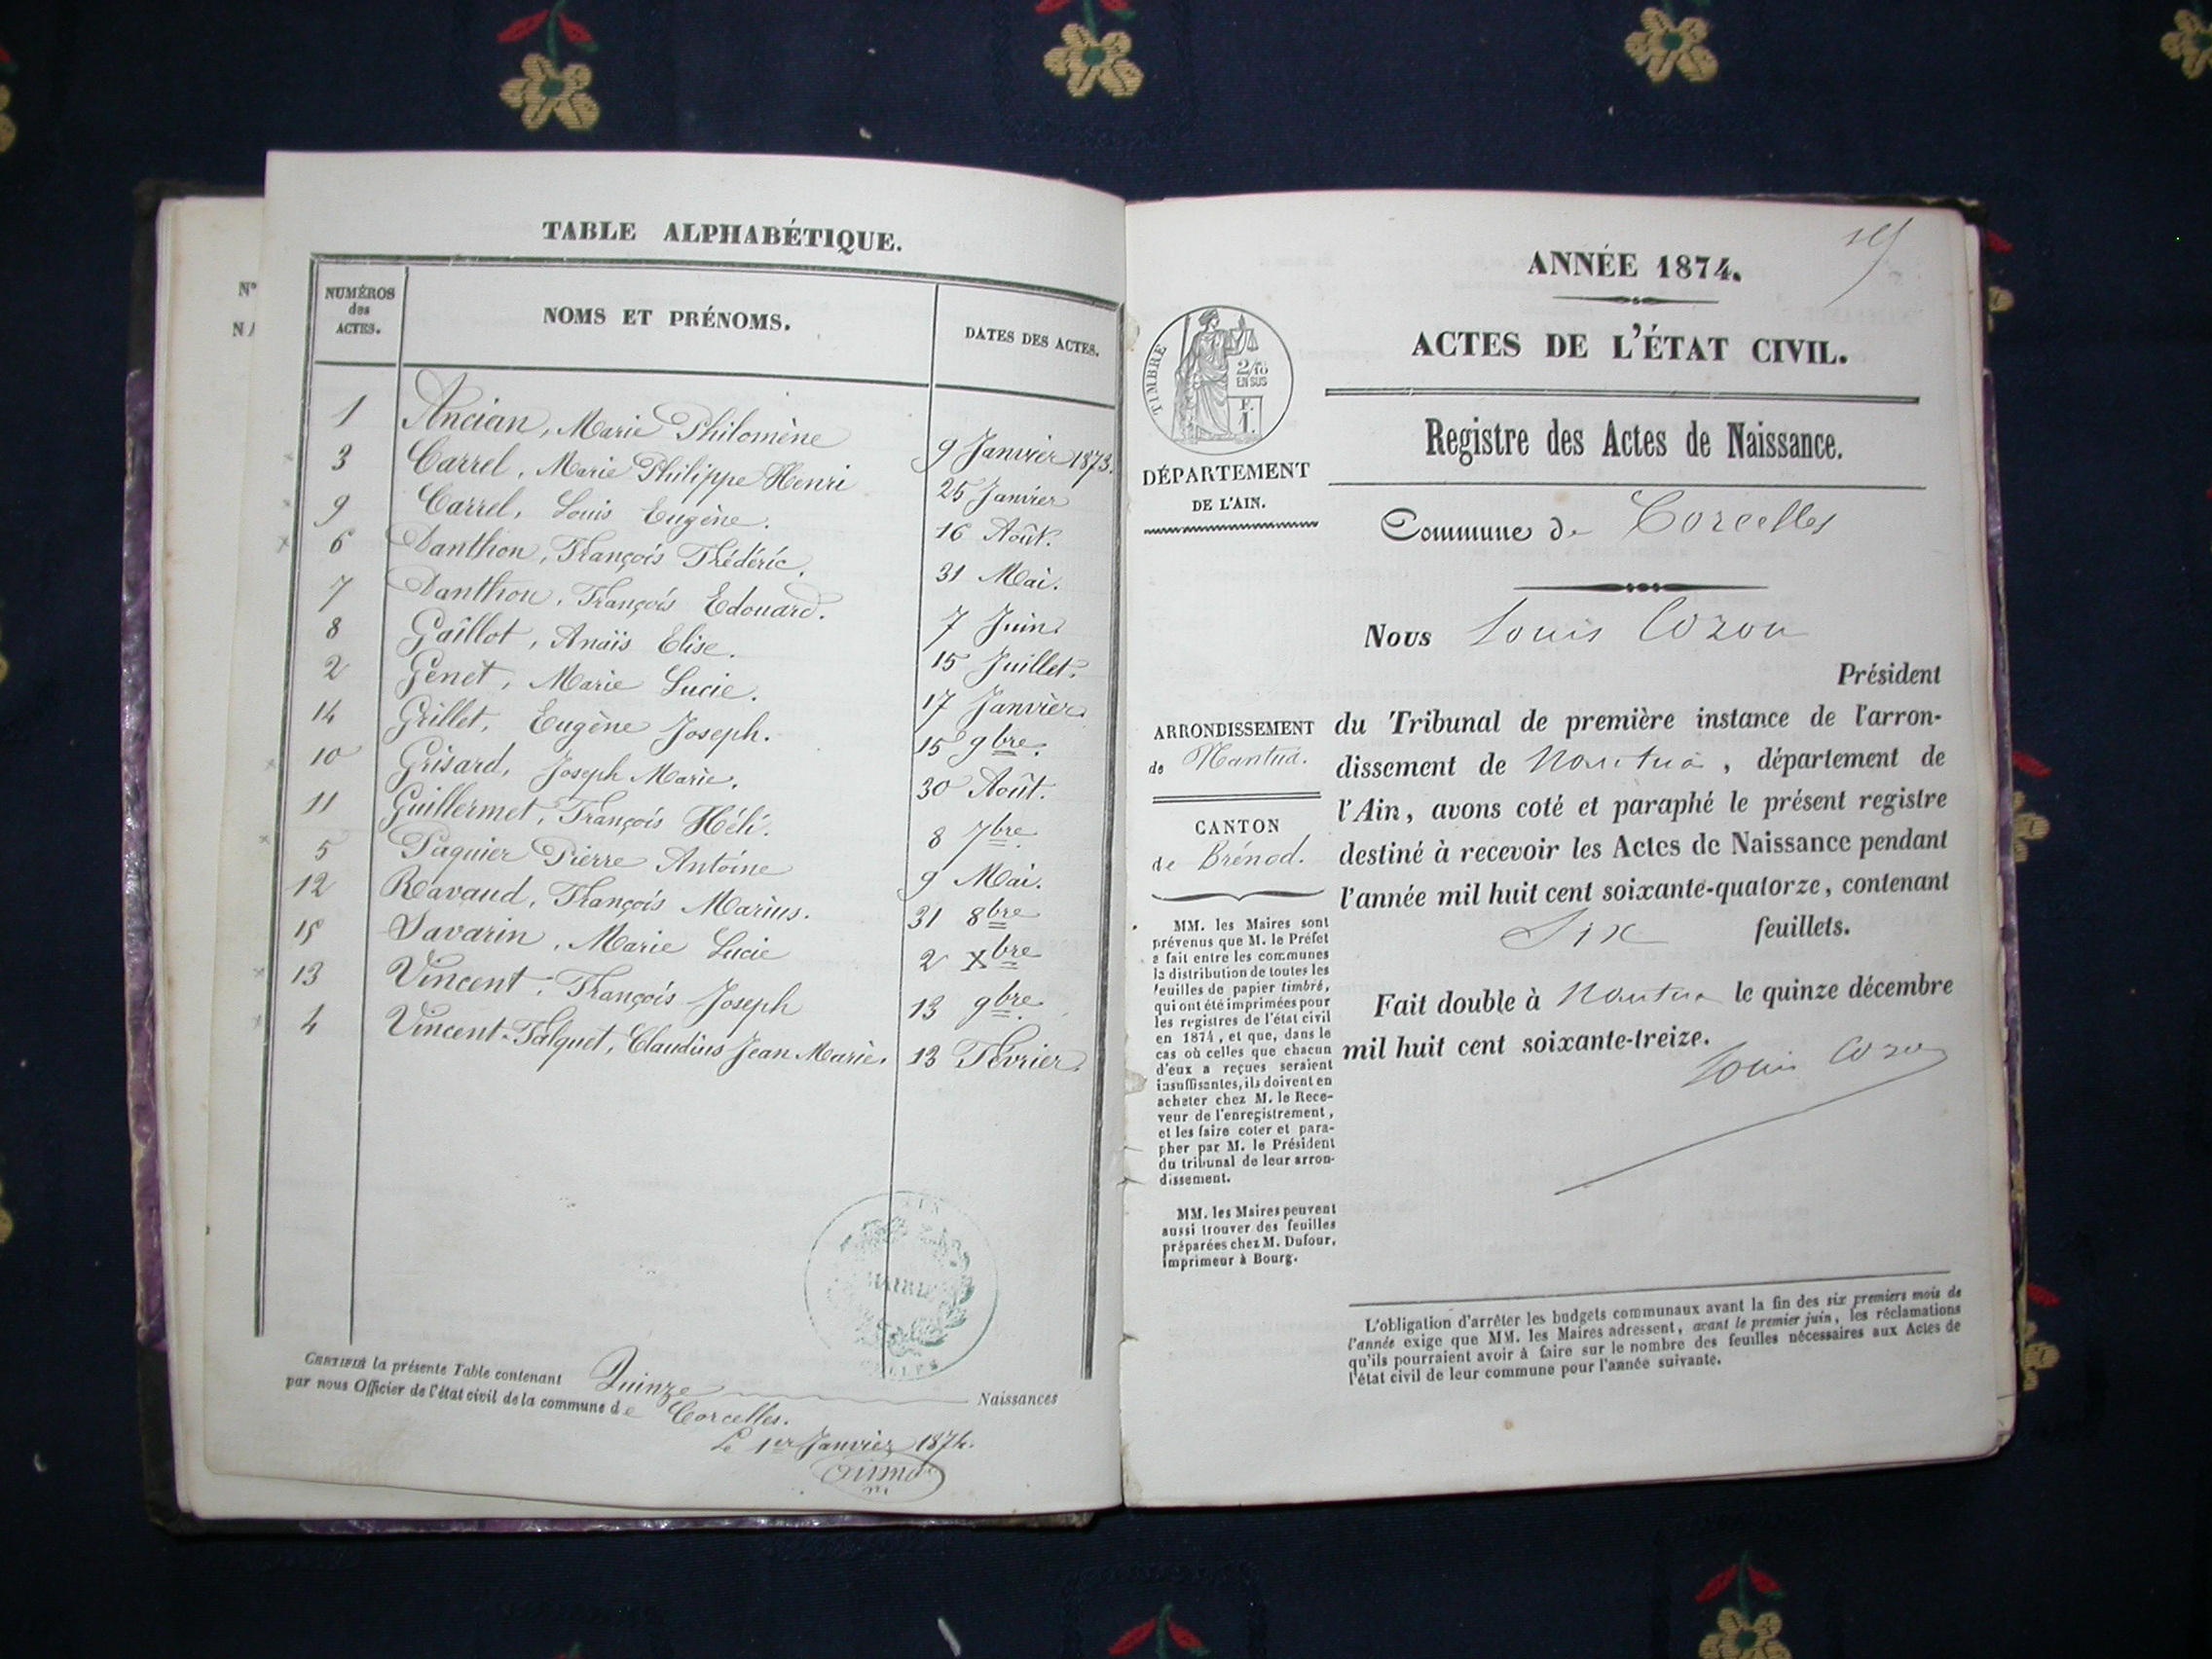 N°
TABLE ALPHABÉTIQUE.
NUMÉROS des ACTES. NOMS ET PRÉNOMS. DATES DES ACTES.
1 Ancian, Marie Philomène 9 Janvier 1873.
3 Carrel, Marie Philippe Henri 25 Janvier
9 Carrel, Louis Eugène. 16 Août.
6 Danthon, François Frédéric. 31 Mai.
7 Danthon, François Edouard. 7 Juin.
8 Gaillot, Anaïs Elise. 15 Juillet.
2 Genet, Marie Lucie. 17 Janvier.
14 Grillet, Eugène Joseph. 15 9bre.
10 Grisard, Joseph Marie. 30 Août.
11 Guillermet, François Héli. 8 7bre.
5 Paquier Pierre Antoine 9 Mai.
12 Ravaud, François Marius. 31 8bre
15 Savarin, Marie Lucie 2 Xbre
13 Vincent, François Joseph 13 9bre.
4 Vincent-Falquet, Claudius Jean Marie. 13 Février.
MAIRIE
CERTIFIÉ la présente Table contenant Quinze Naissances
par nous Officier de l'état civil de la commune de Corcelles.
Le 1er Janvier 1874.
ANNÉE 1874.
ACTES DE L'ÉTAT CIVIL.
Registre des Actes de Naissance.
TIMBRE
2/10
EN SUS
F.
1.
DÉPARTEMENT
DE L'AIN.
Commune de Corcelles
Nous Louis Cozon
Président
du Tribunal de première instance de l'arron-
dissement de Nantua, département de
l'Ain, avons coté et paraphé le présent registre
destiné à recevoir les Actes de Naissance pendant
l'année mil huit cent soixante-quatorze, contenant
Six feuillets.
Fait double à Nantua le quinze décembre
mil huit cent soixante-treize.
Louis Cozon
ARRONDISSEMENT
de Nantua.
CANTON
de Brénod.
MM. les Maires sont
prévenus que M. le Préfet
a fait entre les communes
la distribution de toutes les
feuilles de papier timbré,
qui ont été imprimées pour
les registres de l'état civil
en 1874, et que, dans le
cas où celles que chacun
d'eux a reçues seraient
insuffisantes, ils doivent en
acheter chez M. le Rece-
veur de l'enregistrement,
et les faire coter et para-
pher par M. le Président
du tribunal de leur arron-
dissement.
MM. les Maires peuvent
aussi trouver des feuilles
préparées chez M. Dufour,
imprimeur à Bourg.
L'obligation d'arrêter les budgets communaux avant la fin des six premiers mois de
l'année exige que MM. les Maires adressent, avant le premier juin, les réclamations
qu'ils pourraient avoir à faire sur le nombre des feuilles nécessaires aux Actes de
l'état civil de leur commune pour l'année suivante.